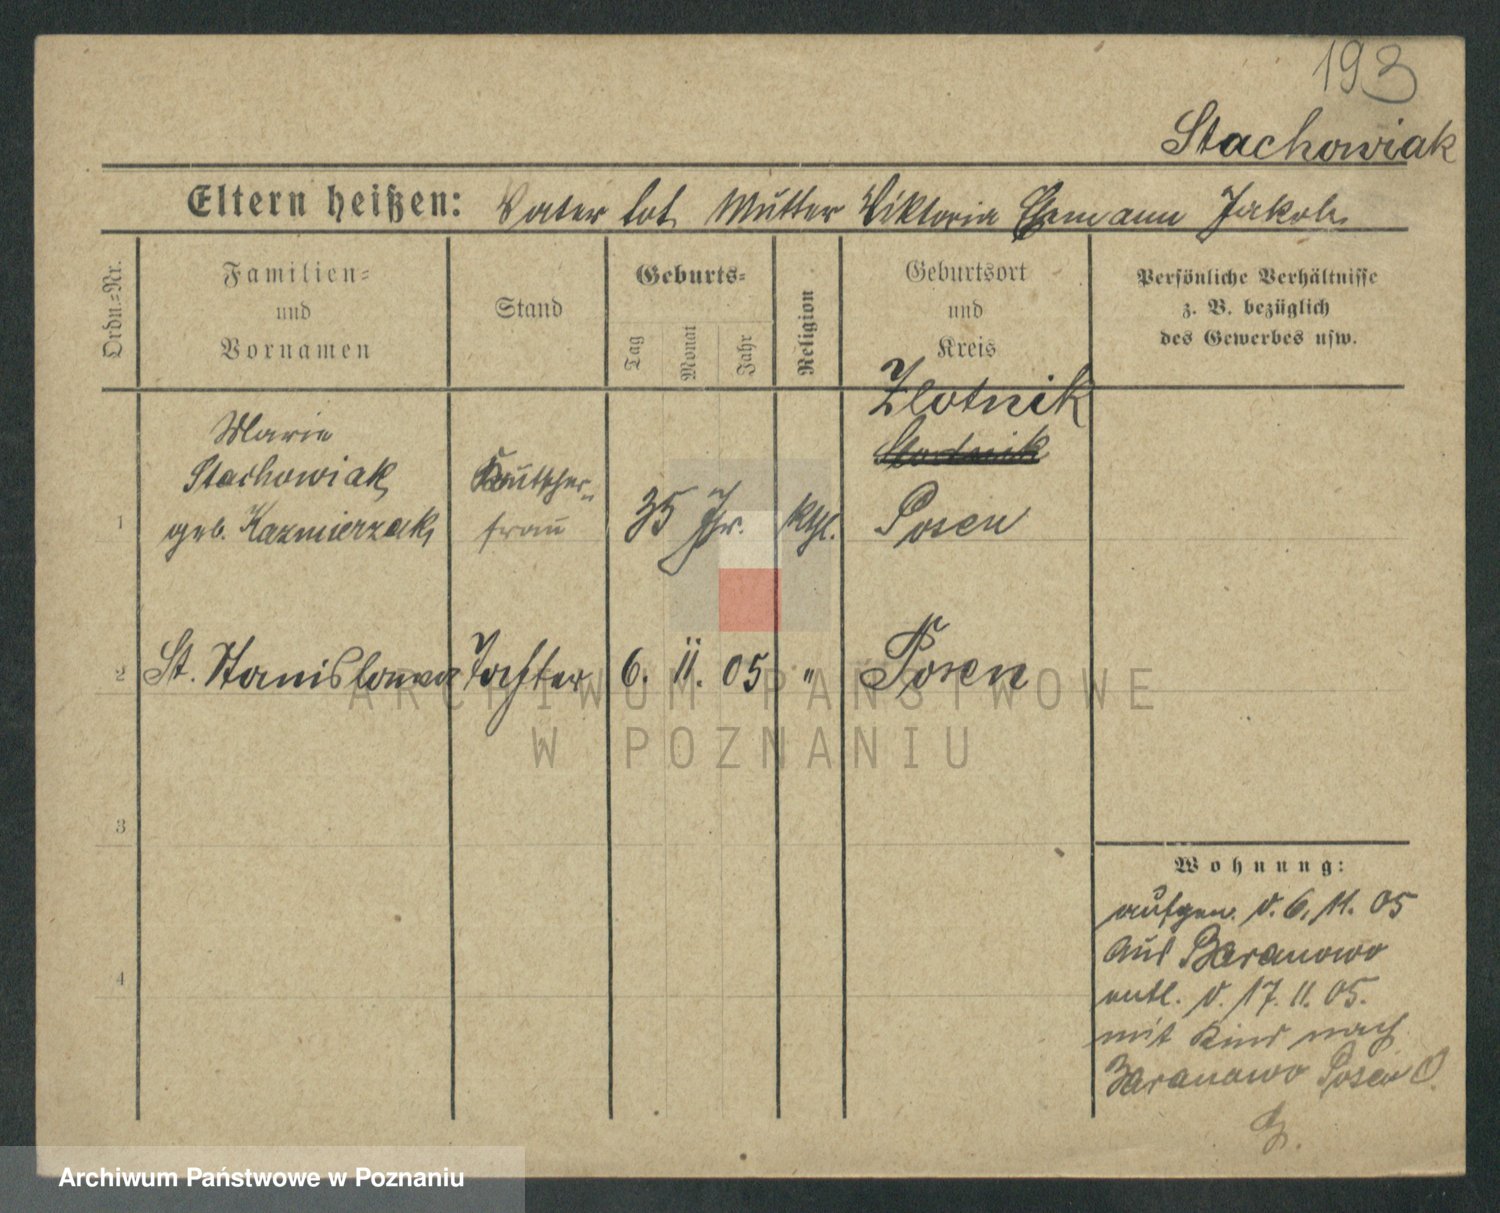 193
Stachowiak
Eltern heißen: Vater tot Mutter Viktoria Ehemann Jakob
Ordn.=Nr.
Familien=
und
Vornamen
Stand
Geburts=
Tag
Monat
Jahr
Religion
Geburtsort
und
Kreis
Persönliche Verhältnisse
z. B. bezüglich
des Gewerbes usw.
Zlotnik
Marie
Stachowiak
geb. Kazmierzak
Kutscher-
frau
1
35 Jhr.
kthl.
Posen
2
St. Stanislawa
Tochter
6. 11. 05
"
Posen
ARCHIWUM PAŃSTWOWE
W POZNANIU
3
4
Wohnung:
aufgen. d. 6. 11. 05
aus Baranowo
entl. d. 17. 11. 05.
mit Kind nach
Baranowo Posen O.
Archiwum Państwowe w Poznaniu